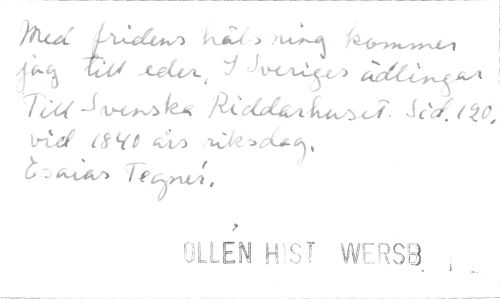 Med fridens hälsning kommer
jag till eder, I Sveriges ädlingar
Till Svenska Riddarhuset. Sid. 120.
vid 1840 års riksdag.
Esaias Tegnér.
OLLÉN HIST WERSB